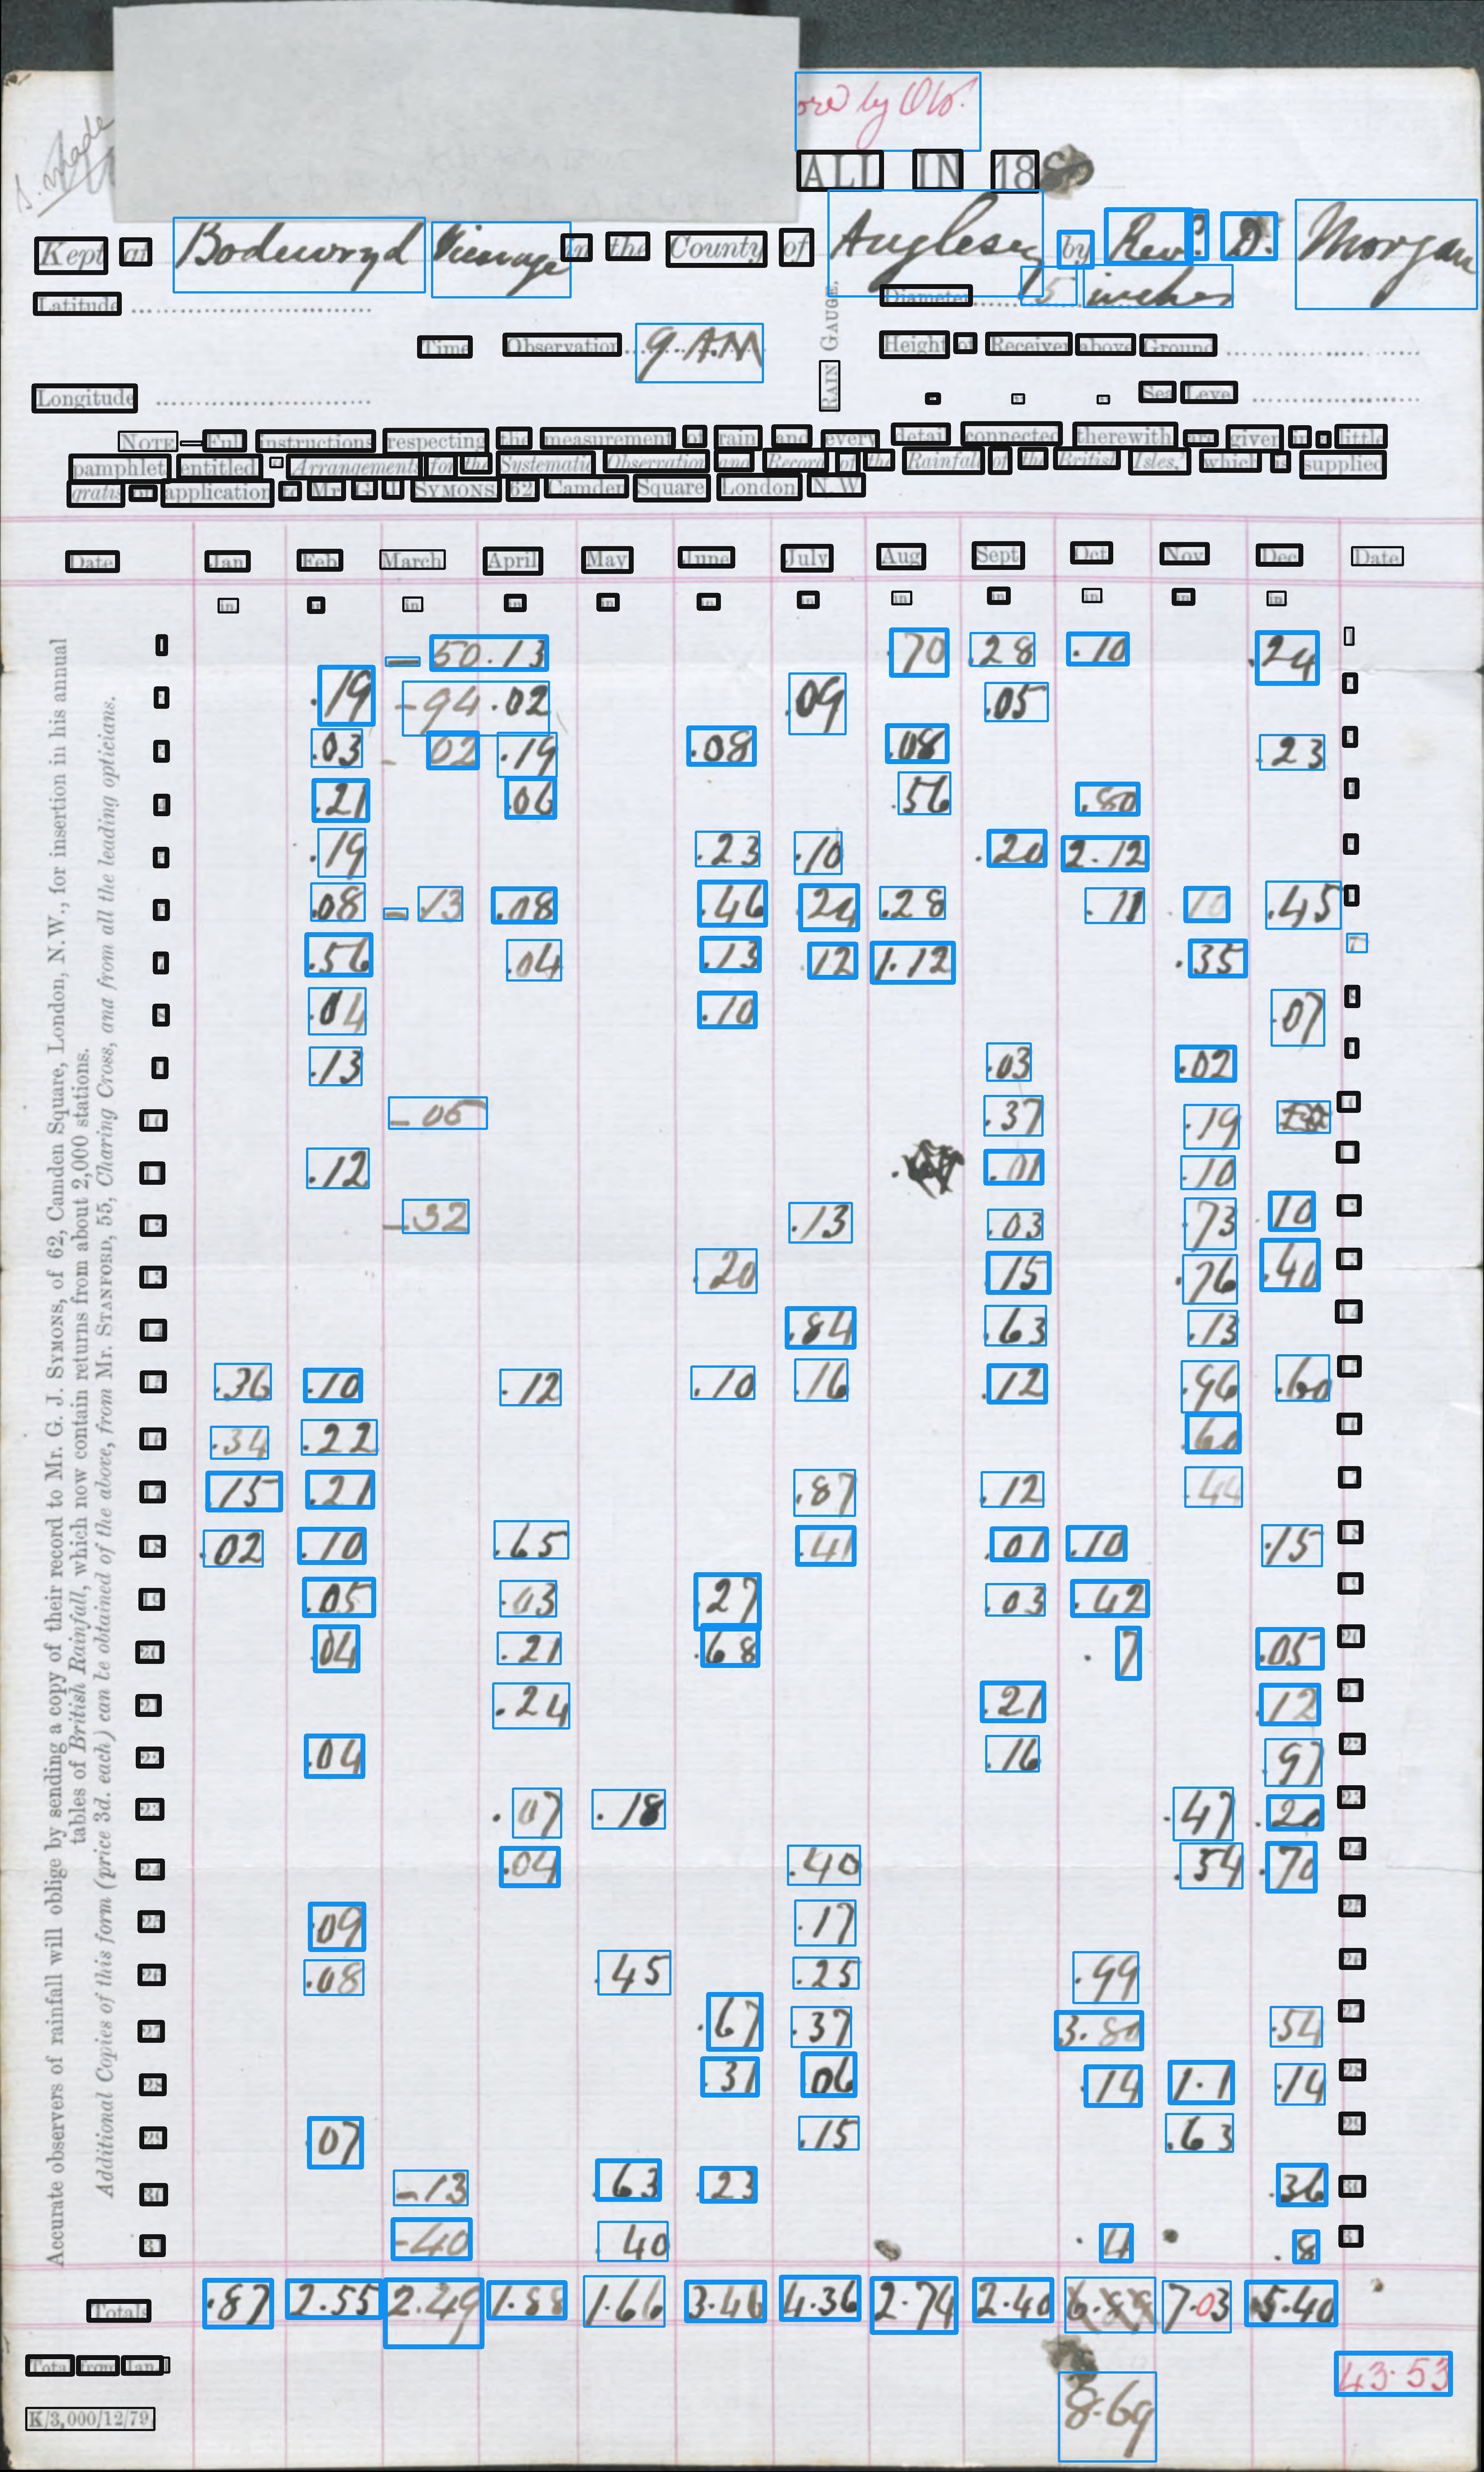 ored by Obs.
ALL IN 18
Kept at Bodewryd Vicarage in the County of Anglesey by Rev. D. Morgan
Latitude Diameter 5 inches
Time Observation 9 A.M Height of Receiver above Ground
RAIN GAUGE.
Longitude Sea Level
NOTE.—Full instructions respecting the measurement of rain and every detail connected therewith are given in a little
pamphlet entitled "Arrangements for the Systematic Observation and Record of the Rainfall of the British Isles," which is supplied
gratis on application to Mr. G. J. SYMONS, 62, Camden Square, London, N.W.
Accurate observers of rainfall will oblige by sending a copy of their record to Mr. G. J. SYMONS, of 62, Camden Square, London, N.W., for insertion in his annual
tables of British Rainfall, which now contain returns from about 2,000 stations.
Additional Copies of this form (price 3d. each) can be obtained of the above, from Mr. STANFORD, 55, Charing Cross, and from all the leading opticians.
Date Jan. Feb. March April May June July Aug. Sept. Oct. Nov. Dec. Date
in. in. in. in. in. in. in. in. in. in. in. in.
1 – 50 .13 .70 .28 .10 .24 1
2 .19 – 94 .02 .09 .05 2
3 .03 – 02 .19 .08 .08 .23 3
4 .21 .06 .56 .80 4
5 .19 .23 .10 .20 2.12 5
6 .08 – 13 .08 .46 .24 .28 .11 .10 .45 6
7 .56 .04 .13 .12 1.12 .35 7
8 .04 .10 .07 8
9 .13 .03 .02 9
10 – 05 .37 .19 10
11 .12 .01 .10 11
12 – 32 .13 .03 .73 .10 12
13 .20 .15 .76 .40 13
14 .84 .63 .13 14
15 .36 .10 .12 .10 .16 .12 .96 .60 15
16 .34 .22 .60 16
17 .15 .21 .87 .12 .44 17
18 .02 .10 .65 .41 .01 .10 .15 18
19 .05 .03 .27 .03 .42 19
20 .04 .21 .68 .7 .05 20
21 .24 .21 .12 21
22 .04 .16 .97 22
23 .07 .18 .47 .20 23
24 .04 .40 .54 .70 24
25 .09 .17 25
26 .08 .45 .25 .99 26
27 .67 .37 3.80 .54 27
28 .31 .06 .14 1.1 .14 28
29 .07 .15 .63 29
30 – 13 .63 .23 .36 30
31 – 40 .40 .4 .8 31
Totals .87 2.55 2.49 1.88 1.66 3.46 4.36 2.74 2.40 6.89 7.03 5.40
Total from Jan. 1 43.53
8.69
K/3,000/12/79.